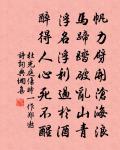 帆力劈開滄海浪
馬蹄踏破亂山青
浮名浮利過於酒
醉得人心死不醒
杜光庭傷時一作鄭遨
詩詞